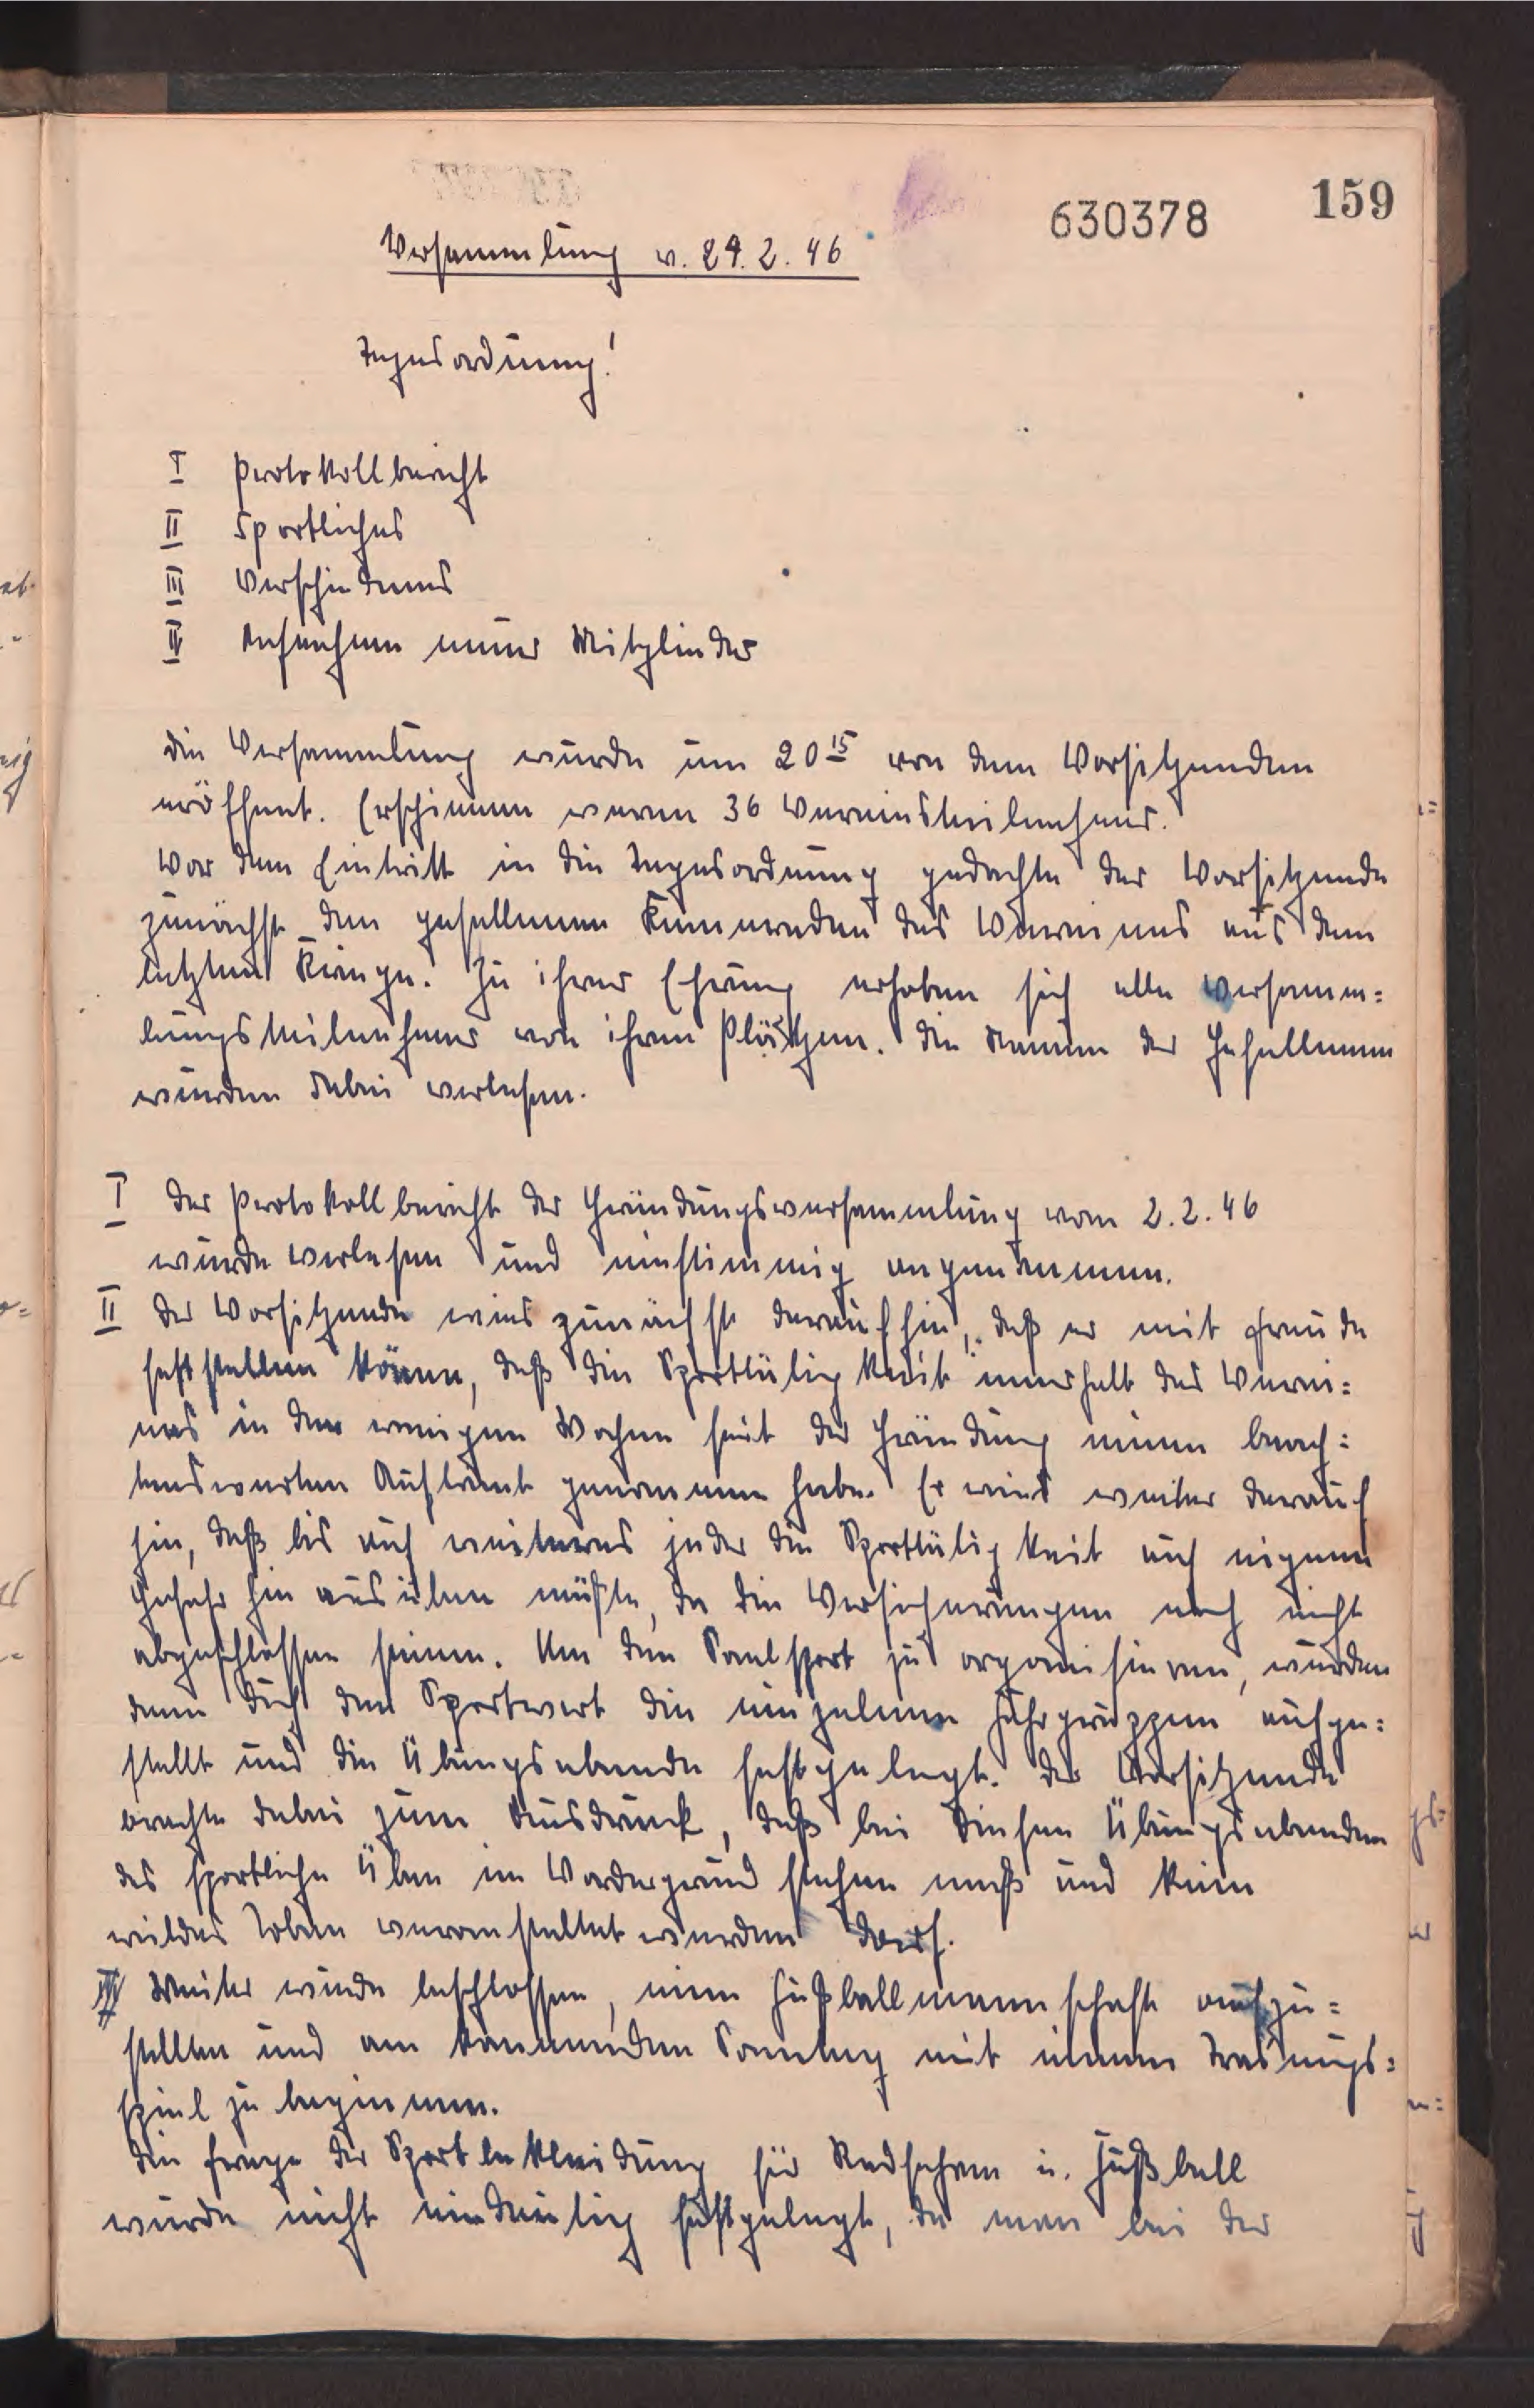 630378
159
Versammlung v. 24.2.46
Tagesordnung!
I Protokollbericht
II Sportliches
III Verschiedenes
IV Aufnahme neuer Mitglieder
Die Versammlung wurde um 20 15 von dem Vorsitzenden
eröffnet. Erschienen waren 36 Vereinsteilnehmer.
Vor dem Eintritt in die Tagesordnung gedachte der Vorsitzende
zunächst den gefallenen Kameraden des Vereines aus dem
letzten Kriege. Zu ihrer Ehrung erhoben sich alle Versamm=
lungsteilnehmer von ihren Plätzen. Die Namen der Gefallenen
wurden dabei verlesen.
I Der Protokollbericht der Gründungsversammlung vom 2.2.46
wurde verlesen und einstimmig angenommen.
II Der Vorsitzende wies zunächst darauf hin, daß er mit Freude
feststellen könne, daß die Sporttätigkeit innerhalb des Verei=
nes in den wenigen Wochen seit der Gründung einen beach=
tenswerten Auftrieb genommen habe. Er wies weiter darauf
hin, daß bis auf weiteres jeder die Sporttätigkeit auf eigene
Gefahr hin ausüben müßte, da die Versicherungen noch nicht
abgeschlossen seien. Um den Saalsport zu organisieren, wurden
dann durch den Sportwart die einzelnen Fahrgruppen aufge=
stellt und die Übungsabende festgelegt. Der Vorsitzende
brachte dabei zum Ausdruck, daß bei diesen Übungsabenden
das sportliche Üben im Vordergrund stehen muß und kein
wildes Toben veranstaltet werden darf.
III Weiter wurde beschlossen, eine Fußballmannschaft aufzu=
stellen und am kommenden Sonntag mit einem Trainings=
spiel zu beginnen.
Die Frage der Sportbekleidung für Radfahren u. Fußball
wurde nicht eindeutig festgelegt, da man bei der